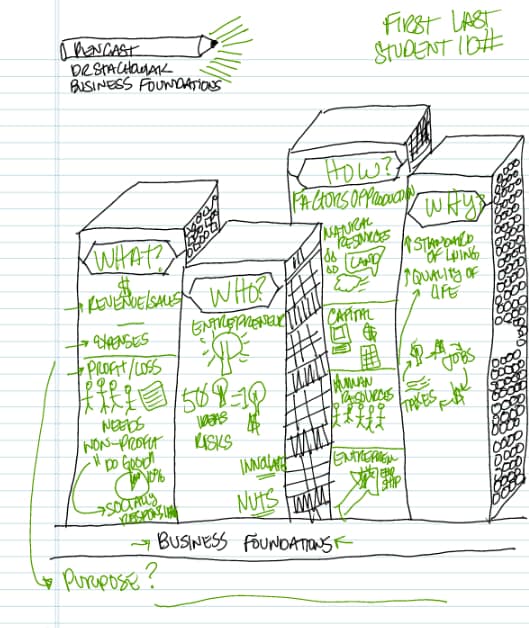 PENCAST
DR STACHOWIAK
BUSINESS FOUNDATIONS
FIRST LAST
STUDENT ID#
WHAT?
$
→ REVENUE/SALES
—
→ EXPENSES
→ PROFIT/LOSS
NEEDS
NON-PROFIT
"DO GOOD"
%
→ SOCIALLY
RESPONSIBLE
WHO?
ENTREPRENEUR
50 = 1
IDEAS $
RISKS
INNOVATE
NUTS
HOW?
FACTORS OF PRODUCTION
NATURAL
RESOURCES
LAND
CAPITAL
$
HUMAN
RESOURCES
ENTREPREN
EUR
SHIP
WHY?
↑ STANDARD
OF LIVING
↑ QUALITY OF
LIFE
$ JOBS
TAXES
→ BUSINESS FOUNDATIONS ←
PURPOSE?